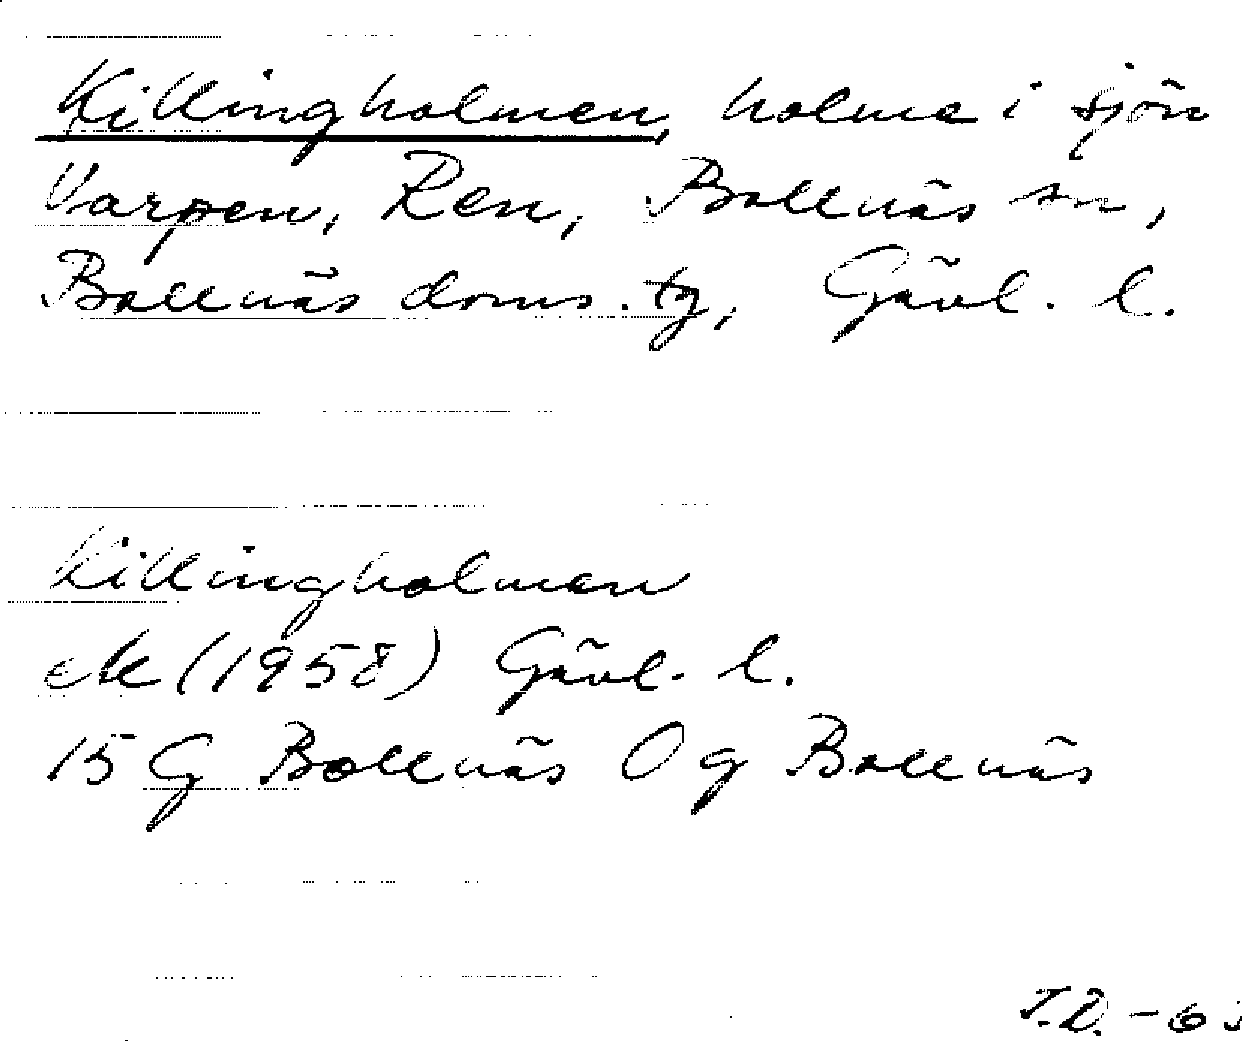 Killingholmen, holme i sjön
Varpen, Ren, Bollnäs sn,
Bollnäs doms. tg, Gävl. l.
Killingholmen
ek (1958) Gävl. l.
15 G Bollnäs 0 g Bollnäs